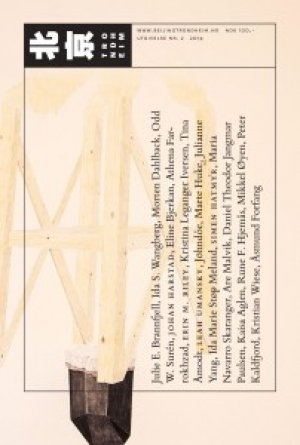 北京
TRO
NDH
EIM
WWW.BEIJINGTRONDHEIM.NO NOK 100,-
UTGIVELSE NR. 2 2014
Julie E. Brannfjell, Ida S. Wangberg, Morten Dahlback, Odd
W. Surén, JOHAN HARSTAD, Eline Bjerkan, Athena Far-
rokhzad, ERIN M. RILEY, Kristina Leganger Iversen, Tina
Åmodt, LEAH UMANSKY, Johndöe, Marte Huke, Julianne
Yang, Ida Marie Støp Meland, SIMEN HATMYR, Maria
Navarro Skaranger, Are Malvik, Daniel Theodor Jangmar
Paulsen, Kaisa Aglen, Rune F. Hjemås, Mikkel Øyen, Peter
Kaldfjord, Kristian Wiese, Åsmund Forfang